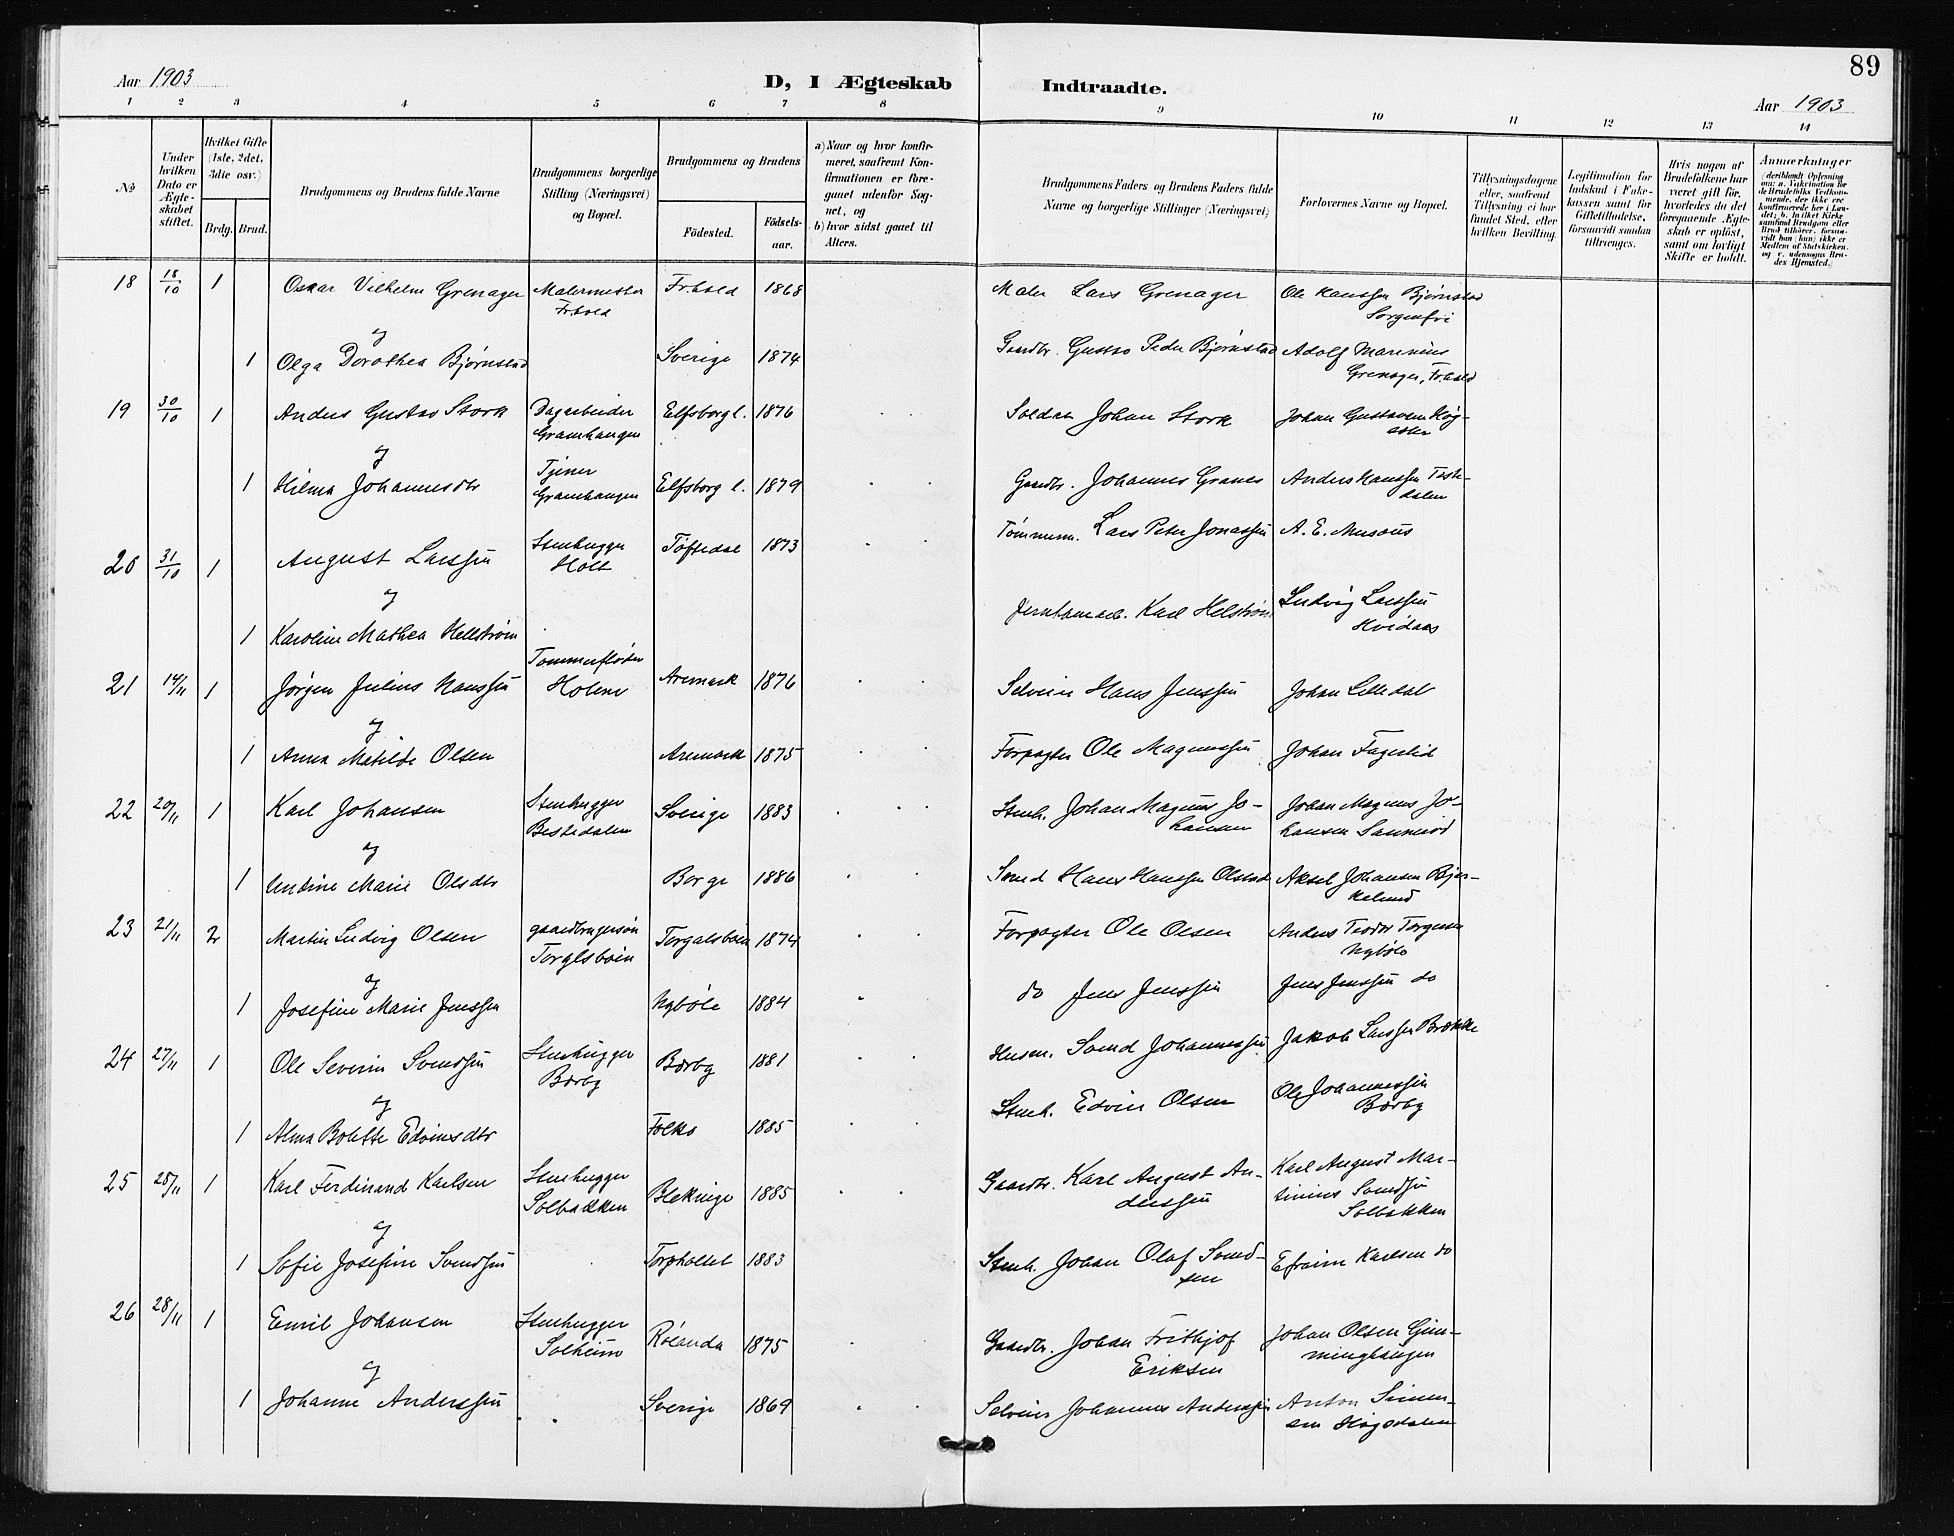 89
Aar 1903
D, I Ægteskab Indtraadte.
Aar 1903
1 2 3 4 5 6 7 8 9 10 11 12 13 14
No
Under hvilken Dato er Ægteskabet stiftet.
Hvilket Gifte (1ste, 2det, 3die osv.)
Brdg. Brud.
Brudgommens og Brudens fulde Navne
Brudgommens borgerlige Stilling (Næringsvei) og Bopæl.
Brudgommens og Brudens
Fødested. Fødselsaar.
a) Naar og hvor konfirmeret, saafremt Konfirmationen er foregaaet udenfor Sognet, og
b) hvor sidst gaaet til Alters.
Brudgommens Faders og Brudens Faders fulde Navne og borgerlige Stillinger (Næringsvei)
Forlovernes Navne og Bopæl.
Tillysningsdagene eller, saafremt Tillysning ei har fundet Sted, efter hvilken Bevilling.
Legitimation for Indskud i Enkekassen samt for Giftetilladelse, forsaavidt saadan tiltrænges.
Hvis nogen af Brudefolkene har været gift før, hvorledes da det foregaaende Ægteskab er opløst, samt om lovligt Skifte er holdt.
Anmærkninger
18 18/10 1 Oskar Vilhelm Grenager Malermester Fr.hald Fr.hald 1868 Maler Lars Grenager Ole Hanssen Bjørnstad Sorgenfri
og
1 Olga Dorothea Bjørnstad Sverige 1874 Gaardbr. Gustav Peder Bjørnstad Adolf Marinius Grenager, Fr.hald
19 30/10 1 Anders Gustav Stork Dagarbeider Gramhaugen Elfsborg l. 1876 Soldat Johan Stork Johan Gustavsen
og
1 Hilma Johannesdtr Tjener Gramhaugen Elfsborg l. 1879 Gaardbr. Johannes Anders Hanssen
20 31/10 1 August Larssen Stenhugger Holt Töftedal 1873 Tømmerm. Lars Peter Jonassen A. E. Musæus
og
1 Karoline Mathea Hellstrøm Karl Helstrøm Ludvig Larssen
21 14/11 1 Jørgen Julius Hanssen Tømmerfløder Holene Aremark 1876 Selveier Hans Jenssen Johan Lilledal
og
1 Anna Matilde Olsen Aremark 1875 Forpagter Ole Magnussen Johan Fagerlid
22 20/11 1 Karl Johansen Stenhugger Bestedalen Sverige 1883 Stenh. Johan Magnus Johansen Johan Magnus Johansen
og
1 Undine Marie Olsdtr Borge 1886 Smed Hans Hanssen Olstad Aksel Johansen Bjørkelund
23 21/11 2 Martin Ludvig Olsen gaardbrugersøn Torgalsbøen Torgalsbøen 1874 Forpagter Ole Olsen Anders Teodor Torgersen Nybøle
og
1 Josefine Marie Jenssen Nybøle 1884 do Jens Jenssen Jens Jenssen do
24 27/11 1 Ole Severin Svendsen Stenhugger Børby Børby 1881 Husm. Svend Johannessen Jakob Larssen Brække
og
1 Alma Bolette Edvinsdtr Folks 1885 Stenh. Edvin Olsen Ole Johannessen Børby
25 28/11 1 Karl Ferdinand Karlsen Stenhugger Solbakken Blekinge 1885 Gaardbr. Karl August Anderssen Karl August Martinius Svendsen Solbakken
og
1 Sofie Josefine Svendsen Torpholtet 1883 Stenh. Johan Olaf Svendsen Efraim Karlsen do
26 28/11 1 Emil Johansen Stenhugger Solheim Rölanda 1875 Gaardbr. Johan Frithjof Eriksen Johan Olsen
og
1 Johanne Anderssen Sverige 1869 Selveier Johannes Anderssen Anton Simensen